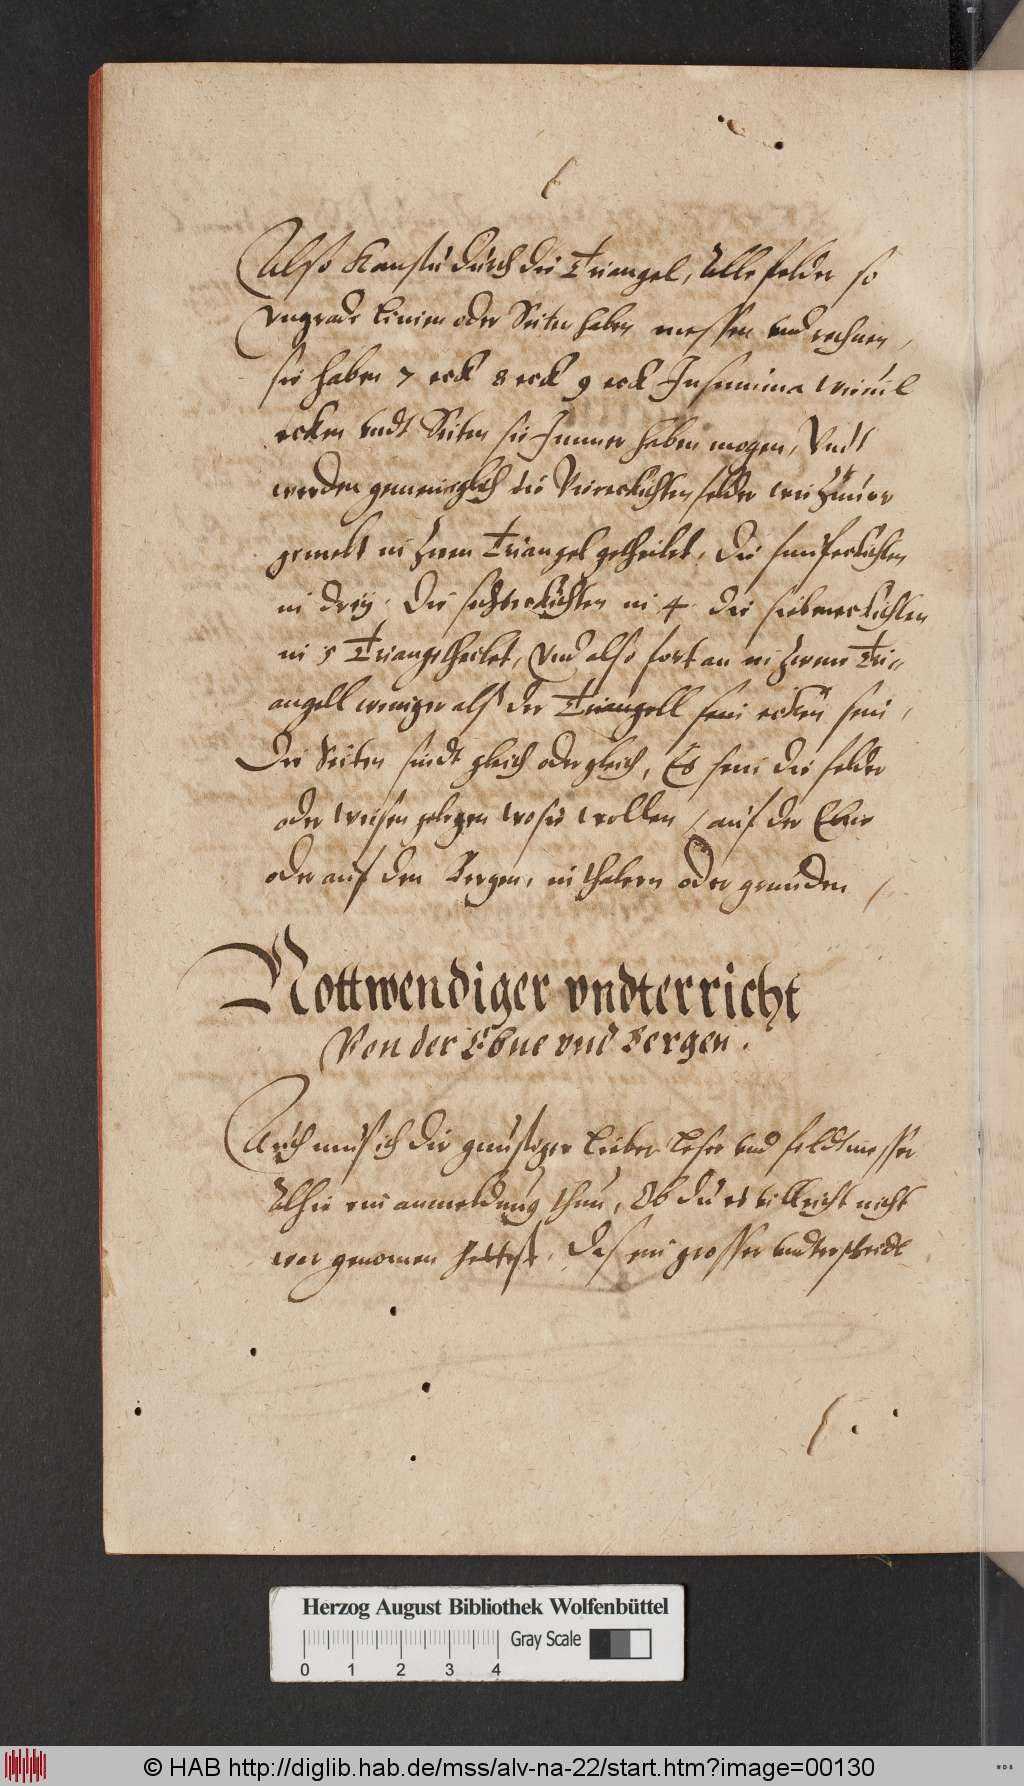 Also Kanstu durch die Triangel, Alle felder so
vngrade linien oder Seiten haben messen vnd rechnen,
sie haben 7 eck 8 eck 9 eck In summa wieuil
ecken vndt Seiten sie Immer haben mogen, Vndt
werden gemeiniglich die Viereckichten felder wie zuuor
gemelt in zwen Triangel getheilet, Die funfeckichten
in drey. Die sechseckichten in 4. die siebeneckichten
in 5 Triangel theilet, vnd also fort an in zwene Tri-
angell weniger alß der Triangell sein ecken sein,
Die Seiten sindt gleich oder gleich, Es sein die felder
oder wiesen gelegen wo sie wollen, auf der Ebne
oder auf den Bergen, in thalern oder grunden,
Nottwendiger vndterricht
Von der Ebne vnd Bergen.
Auch mus ich dir gunstiger lieber leser vnd feldtmesser
Alhie ein anmeldung thun, Ob du es villeicht nicht
war genomen hettest, Das ein grosser vndterscheidt
Herzog August Bibliothek Wolfenbüttel
Gray Scale
0 1 2 3 4
© HAB http://diglib.hab.de/mss/alv-na-22/start.htm?image=00130